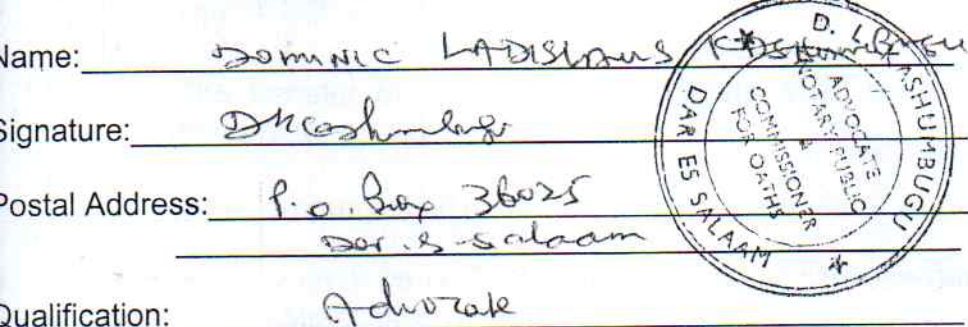 Name: DOMINIC LADISLAUS KASHUMBUGU
Signature: DKashumbugu
Postal Address: P.O. Box 36025
Dar-S-Salaam
Qualification: Advocate
D. L. KASHUMBUGU
ADVOCATE
NOTARY PUBLIC
&
COMMISSIONER
FOR OATHS
DAR ES SALAAM